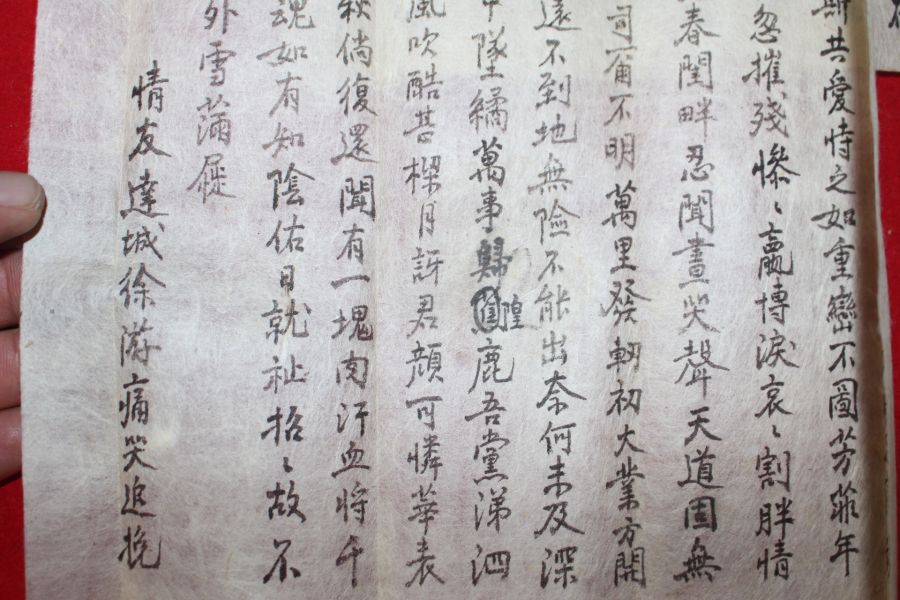 斯共愛恃之如重巒不圖芳菲年
忽摧殘慘〻嬴博淚哀〻割胖情
春閨畔忍聞晝哭聲天道固無
司甭不明萬里發軔初大業方開
遠不到地無險不能出奈何未及深
中墜繘萬事歸隍鹿吾黨涕泗
風吹酷苦樑月訝君顔可憐華表
倘復還聞有一塊肉汗血將千
魂如有知陰佑日就祉招〻故不
外雪蒲屣
情友達城徐游痛哭追挽